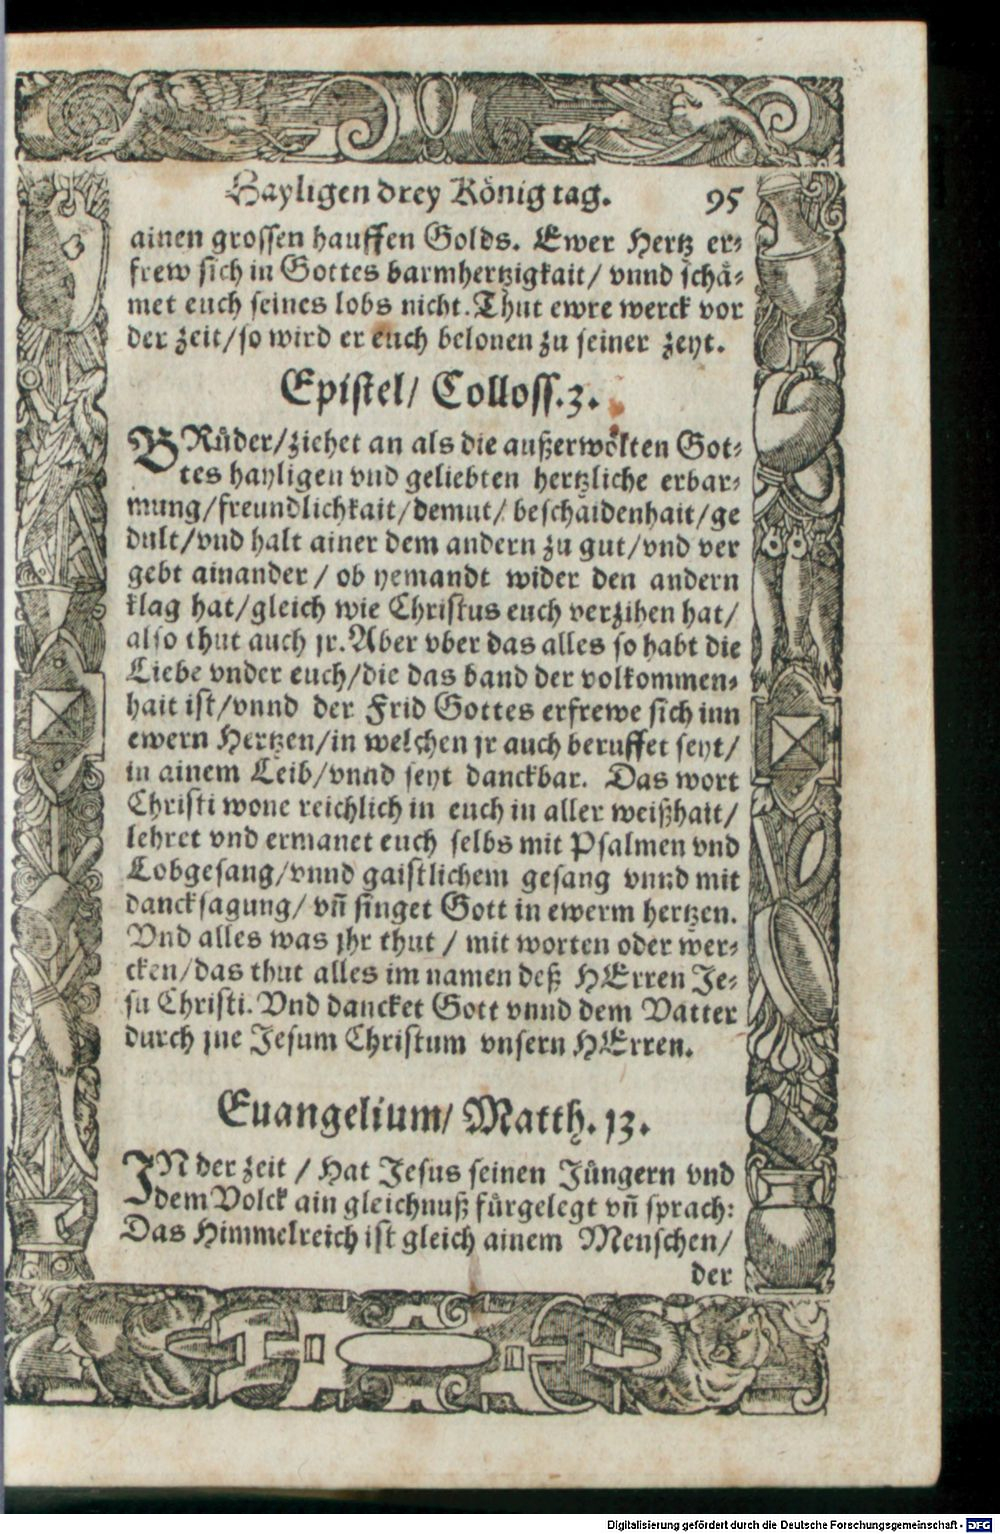 Hayligen drey König tag. 95
ainen grossen hauffen Golds. Ewer Hertz er-
frew sich in Gottes barmhertzigkait/ vnnd schä-
met euch seines lobs nicht. Thut ewre werck vor
der zeit/so wird er euch belonen zu seiner zeyt.
Epistel/ Colloss.3.
BRüder/ziehet an als die außerwölten Got-
tes hayligen vnd geliebten hertzliche erbar-
mung/freundlichkait/demut/ beschaidenhait/ge
dult/vnd halt ainer dem andern zu gut/vnd ver
gebt ainander / ob yemandt wider den andern
klag hat/gleich wie Christus euch verzihen hat/
also thut auch jr. Aber vber das alles so habt die
Liebe vnder euch/die das band der volkommen-
hait ist/vnnd der Frid Gottes erfrewe sich inn
ewern Hertzen/in welchen jr auch beruffet seyt/
in ainem Leib/vnnd seyt danckbar. Das wort
Christi wone reichlich in euch in aller weißhait/
lehret vnd ermanet euch selbs mit Psalmen vnd
Lobgesang/vnnd gaistlichem gesang vnnd mit
dancksagung/ vñ singet Gott in ewerm hertzen.
Vnd alles was jhr thut / mit worten oder wer-
cken/das thut alles im namen deß HErren Je-
su Christi. Vnd dancket Gott vnnd dem Vatter
durch jne Jesum Christum vnsern HErren.
Euangelium/ Matth. 13.
IN der zeit / Hat Jesus seinen Jüngern vnd
dem Volck ain gleichnuß fürgelegt vñ sprach:
Das Himmelreich ist gleich ainem Menschen/
der
Digitalisierung gefördert durch die Deutsche Forschungsgemeinschaft - DFG